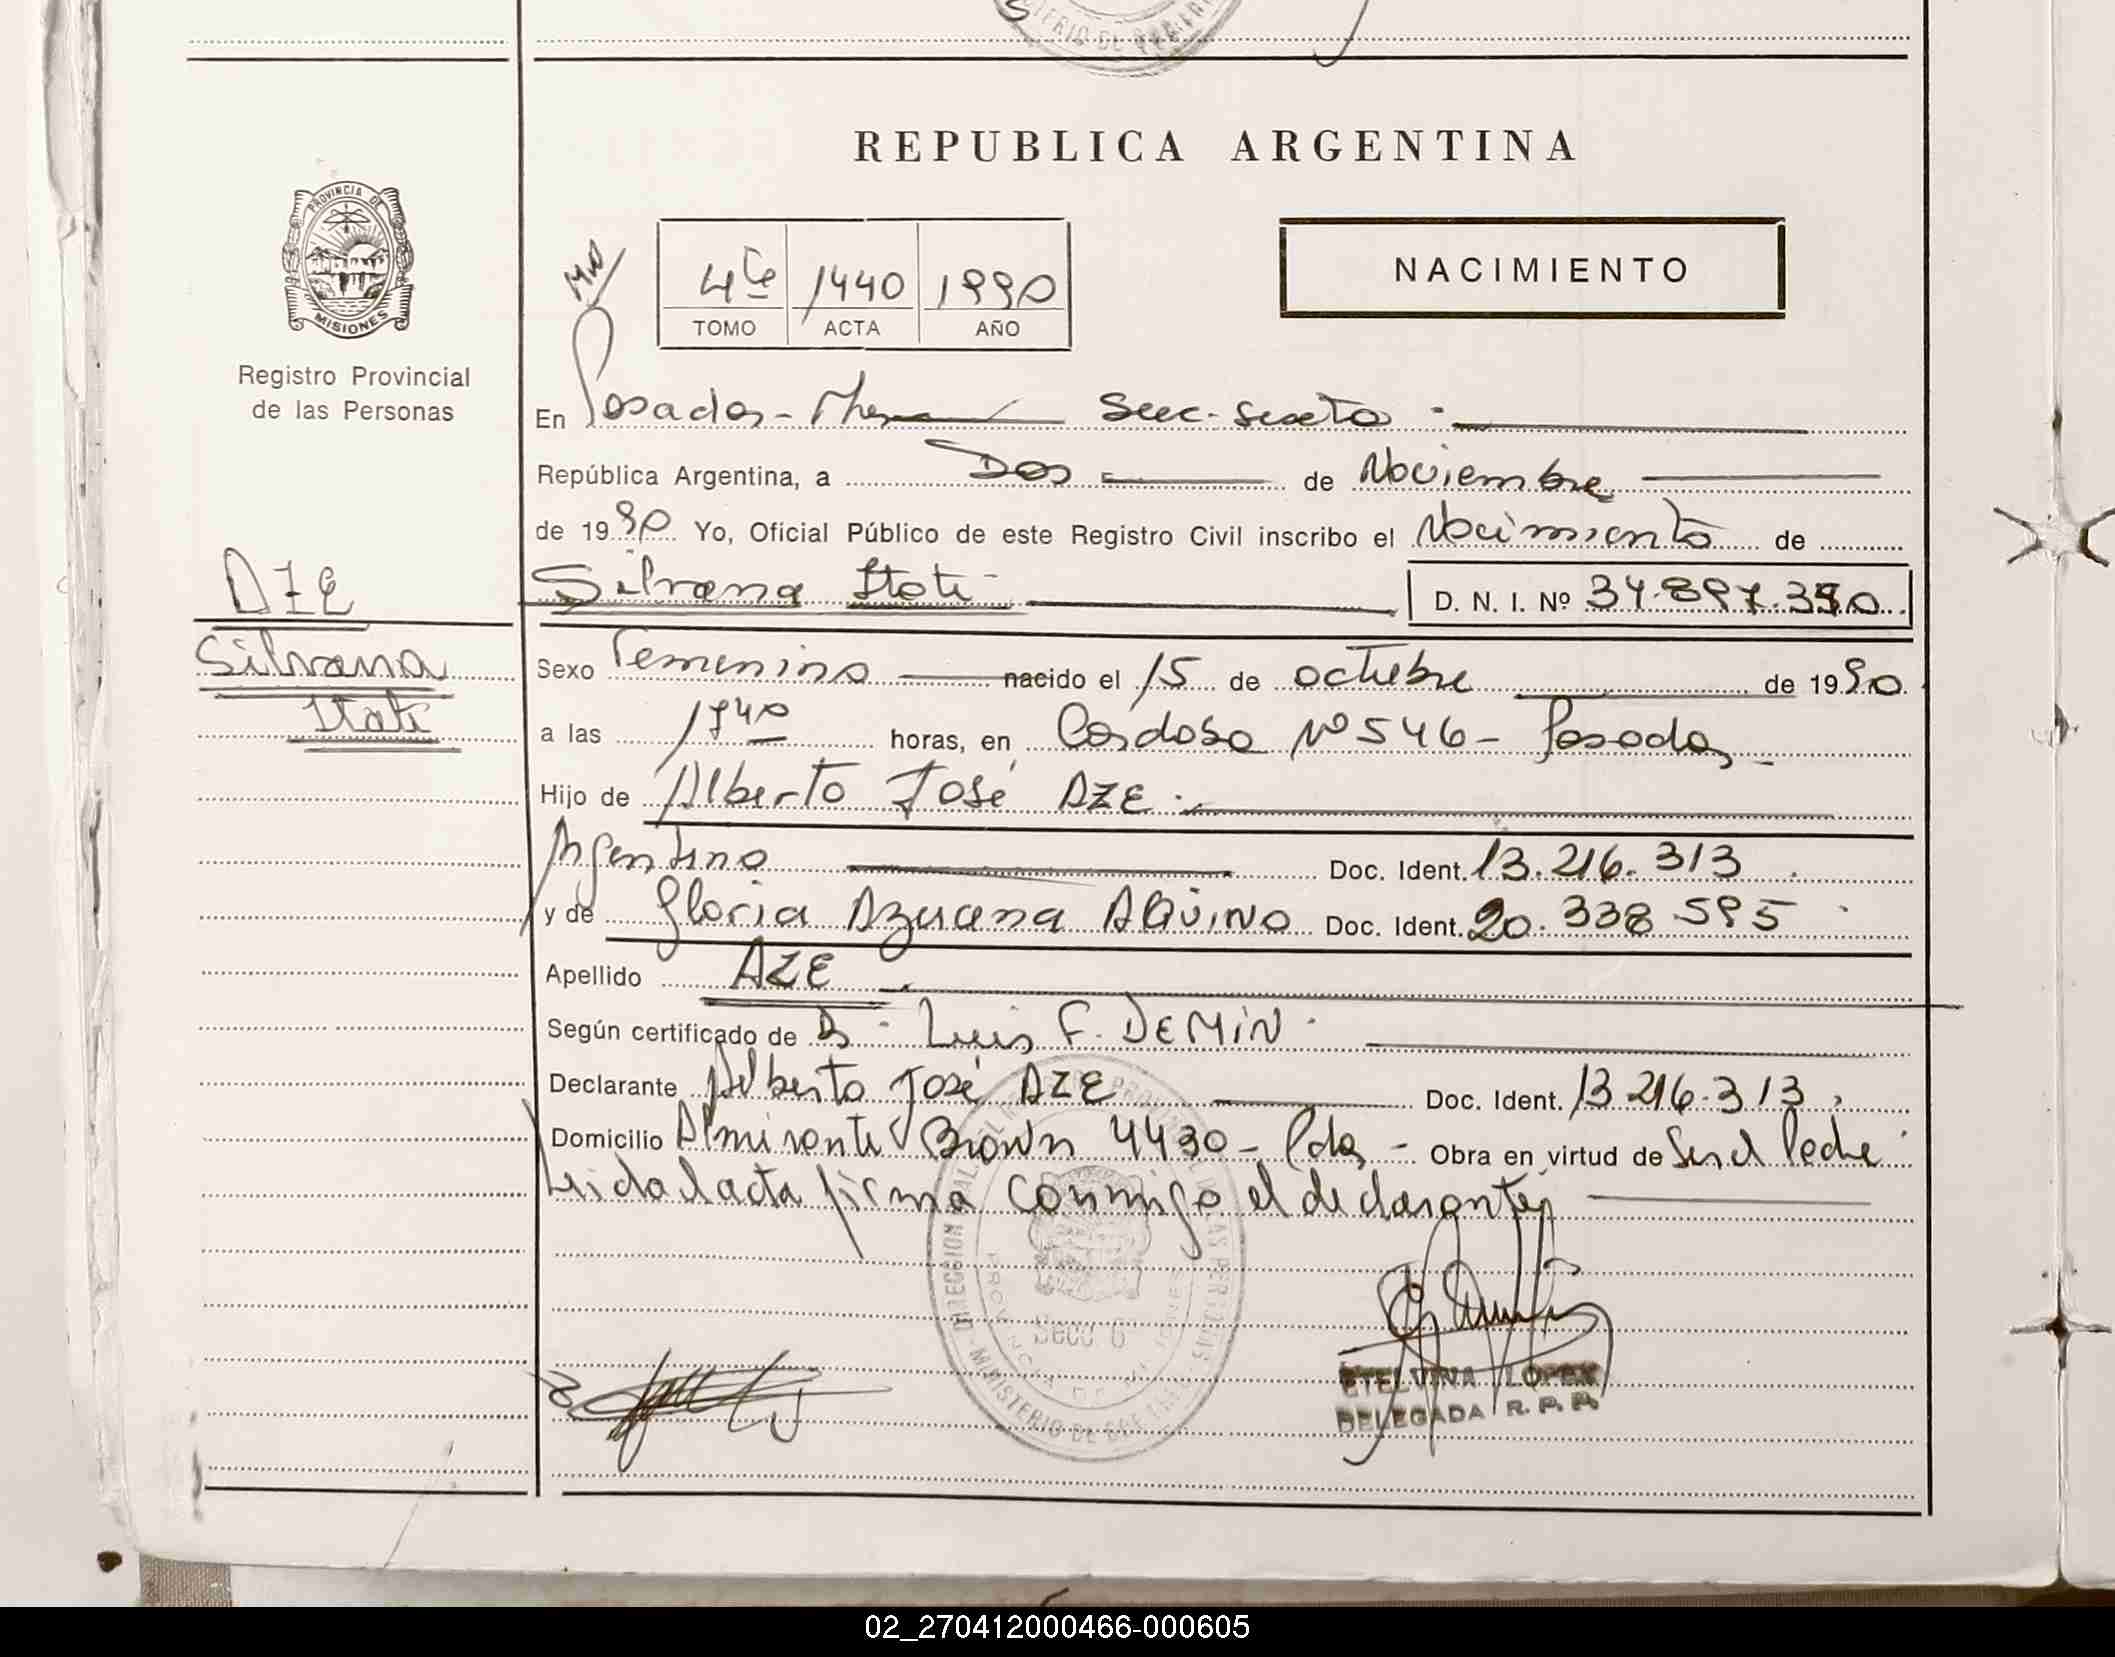 REPUBLICA ARGENTINA
PROVINCIA DE
MISIONES
Registro Provincial
de las Personas
4to 1440 1990
TOMO ACTA AÑO
NACIMIENTO
En Posadas - Mnes Secc. sexta
República Argentina, a Dos de Noviembre
de 1990 Yo, Oficial Público de este Registro Civil inscribo el Nacimiento de
Silvana Itatí D. N. I. Nº 34.897.350
AZE
Silvana
Itatí
Sexo Femenino nacido el 15 de octubre de 1990
a las 1740 horas, en Córdoba Nº 546 - Posadas
Hijo de Alberto José AZE
Argentino Doc. Ident. 13.216.313
y de Gloria Azucena AQUINO Doc. Ident. 20.338.595
Apellido AZE
Según certificado de Dr. Luis F. DEMIN
Declarante Alberto José AZE Doc. Ident. 13.216.313
Domicilio Almirante Brown 4430 - Pdas - Obra en virtud de Ser el Padre
Leida el acta firma conmigo el declarante
Secc 6
ETELVINA LOPEZ
DELEGADA R. P. P.
02_270412000466-000605